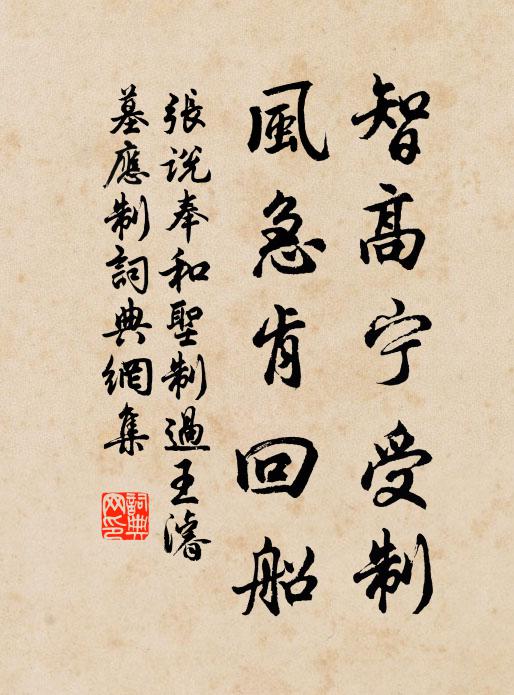 智高宁受制
風急肯回船
張说奉和聖制過王濬
墓應制詞典網集
詞典
网印